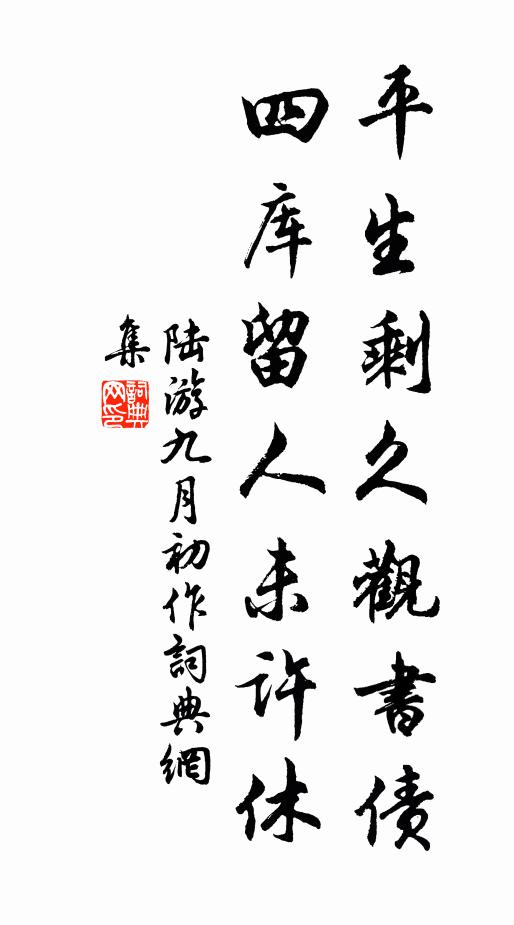 平生剩久觀書債
四库留人未許休
陸游九月初作詞典網
集
詞典
网印